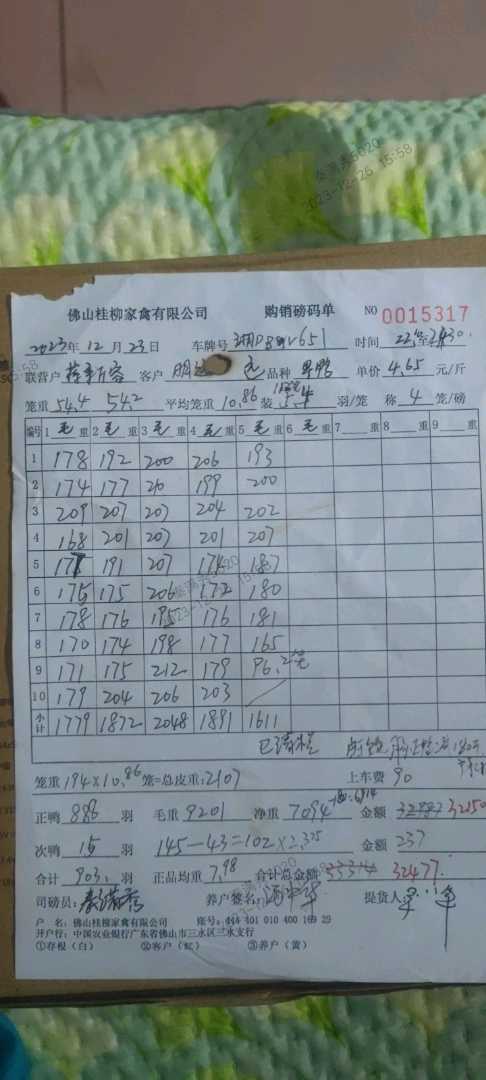 秦满秀5020
2023-12-26 15:58
佛山桂柳家禽有限公司 购销磅码单 NO 0015317
2023年 12月 23日 车牌号 时间
联营户 客户 品种 单价 4.65 元/斤
笼重 54.4 54.2 平均笼重 10.86 装 羽/笼 称 4 笼/磅
编号 1 毛 重 2 毛 重 3 毛 重 4 毛 重 5 毛 重 6 毛 重 7 重 8 重 9 重
1 178 192 200 206 193
2 174 177 199 200
3 209 207 207 204 202
4 168 201 207 201 207
5 191 207 174 187
6 175 175 206 172 180
7 178 176 195 176 181
8 170 174 198 177 165
9 171 175 212 179 96.2笼
10 179 204 206 203
小计 1779 1872 2048 1891 1611
笼重 194×10.86 笼=总皮重:2107 上车费 90
正鸭 888 羽 毛重 9201 净重 7094 金额
次鸭 15 羽 145-43=102×2.325 金额 237
合计 903 羽 正品均重 7.98 合计总金额 32477
司磅员: 秦满秀 养户签名: 提货人:
户 名:佛山桂柳家禽有限公司 账号:444 401 010 400 169 29
开户行:中国农业银行广东省佛山市三水区三水支行
①存根(白) ②客户(红) ③养户(黄)